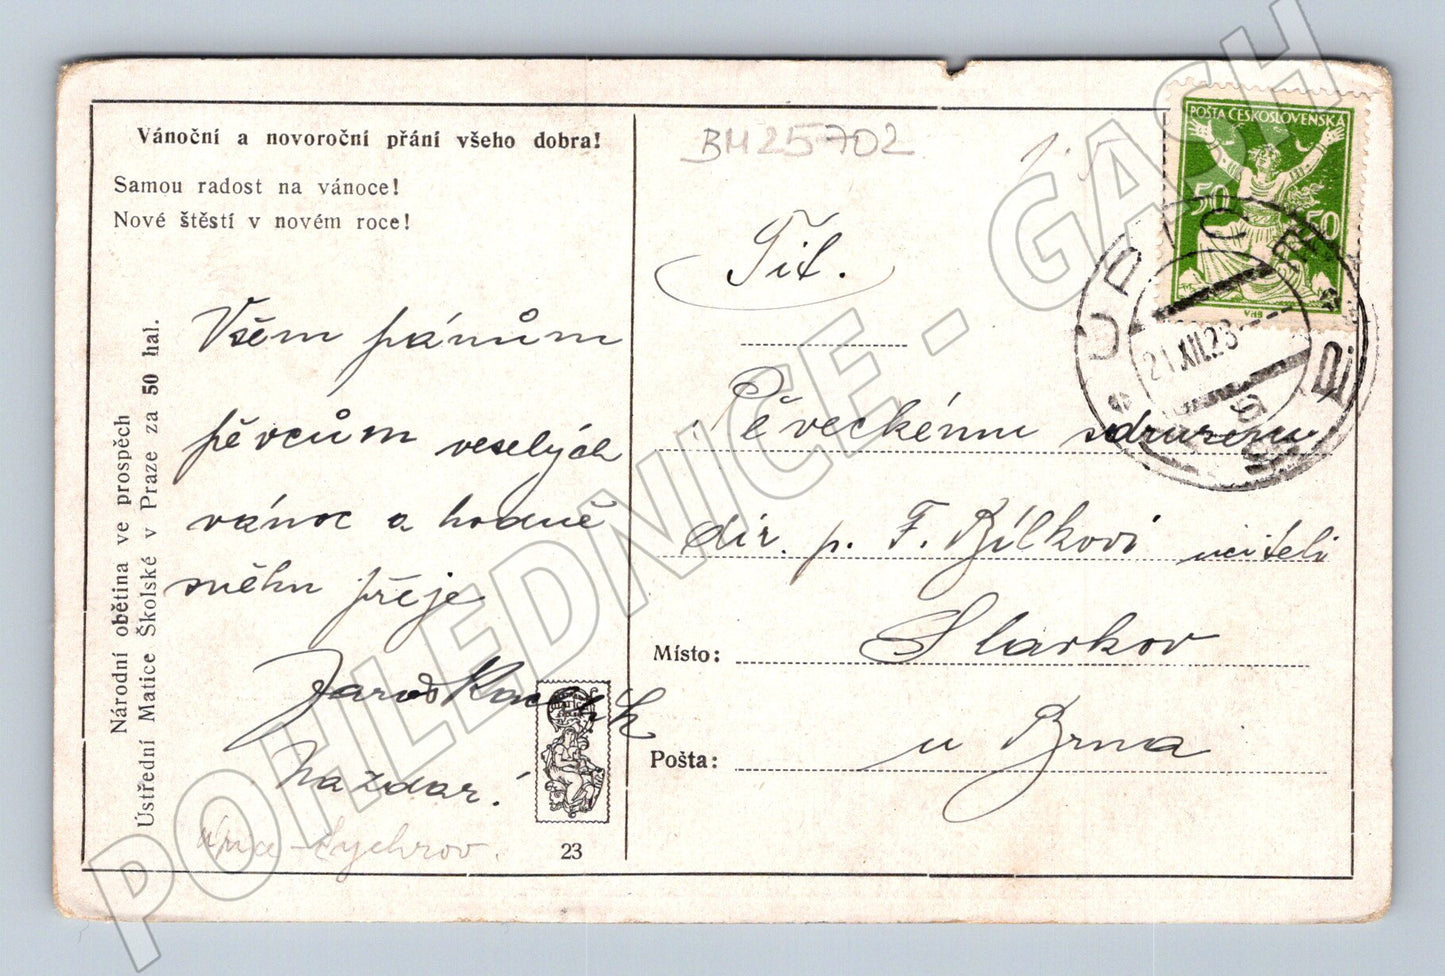 Vánoční a novoroční přání všeho dobra!
Samou radost na vánoce!
Nové štěstí v novém roce!
Všem pánům
pěvcům veselých
vánoc a hodně
sněhu přeje
Jaroš
Nazdar!
Národní obětina ve prospěch
Ústřední Matice Školské v Praze za 50 hal.
23
BM25702
Tit.
Pěveckému sdružení
dir. p. F. Bílkovi učiteli
Místo: Slavkov
Pošta: u Brna
POŠTA ČESKOSLOVENSKÁ
50 50
21.XII.23
POHLEDNICE - GASH